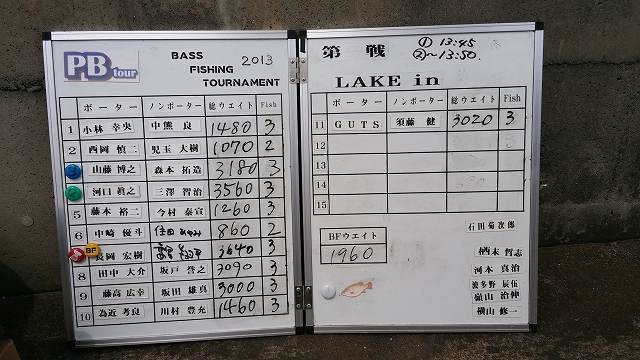 PB tour
BASS
FISHING
TOURNAMENT
2013
ボーター ノンボーター 総ウエイト Fish
1 小林 幸央 中熊 良 1480 3
2 西岡 慎二 児玉 大樹 1070 2
山藤 博之 森本 拓造 3180 3
河口 眞之 三澤 智治 3560 3
5 藤本 裕二 今村 泰宣 1260 3
6 中崎 優斗 住田 860 2
BF 長岡 宏樹 3640 3
8 田中 大介 坂戸 誉之 3090 3
9 藤高 広幸 坂田 雄真 3000 3
10 為近 考良 川村 豊充 1460 3
第 戦
① 13:45
②~13:50.
LAKE in
ボーター ノンボーター 総ウエイト Fish
11 GUTS 須藤 健 3020 3
12
13
14
15
BFウエイト
1960
石田 菊次郎
栖末 哲志
河本 真治
波多野 辰伍
嶺山 治伸
横山 修一